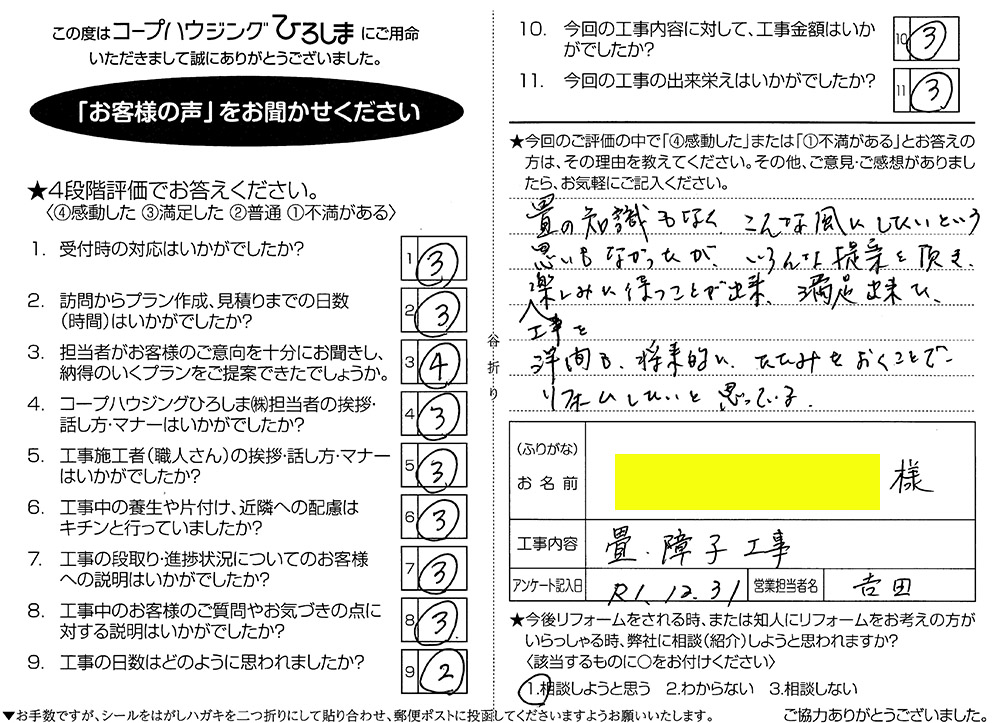 この度はコープハウジングひろしまにご用命
いただきまして誠にありがとうございました。
「お客様の声」をお聞かせください
★4段階評価でお答えください。
〈④感動した ③満足した ②普通 ①不満がある〉
1. 受付時の対応はいかがでしたか?
1 3
2. 訪問からプラン作成、見積りまでの日数
(時間)はいかがでしたか?
2 3
3. 担当者がお客様のご意向を十分にお聞きし、
納得のいくプランをご提案できたでしょうか。
3 4
4. コープハウジングひろしま㈱担当者の挨拶・
話し方・マナーはいかがでしたか?
4 3
5. 工事施工者(職人さん)の挨拶・話し方・マナー
はいかがでしたか?
5 3
6. 工事中の養生や片付け、近隣への配慮は
キチンと行っていましたか?
6 3
7. 工事の段取り・進捗状況についてのお客様
への説明はいかがでしたか?
7 3
8. 工事中のお客様のご質問やお気づきの点に
対する説明はいかがでしたか?
8 3
9. 工事の日数はどのように思われましたか?
9 2
谷折り
10. 今回の工事内容に対して、工事金額はいか
がでしたか?
10 3
11. 今回の工事の出来栄えはいかがでしたか?
11 3
★今回のご評価の中で「④感動した」または「①不満がある」とお答えの
方は、その理由を教えてください。その他、ご意見・ご感想がありまし
たら、お気軽にご記入ください。
畳の知識もなく こんな風にしたいという
思いもなかったが、いろんな提案を頂き、
楽しみに待つことが出来、満足出来た、
工事を
洋間も、将来的に、たたみをおくことで
リフォームしたいと思っている.
(ふりがな)
お名前
様
工事内容
畳.障子工事
アンケート記入日
R1.12.31
営業担当者名
吉田
★今後リフォームをされる時、または知人にリフォームをお考えの方が
いらっしゃる時、弊社に相談(紹介)しようと思われますか?
〈該当するものに○をお付けください〉
1.相談しようと思う 2.わからない 3.相談しない
▼お手数ですが、シールをはがしハガキを二つ折りにして貼り合わせ、郵便ポストに投函してくださいますようお願いいたします。
ご協力ありがとうございました。